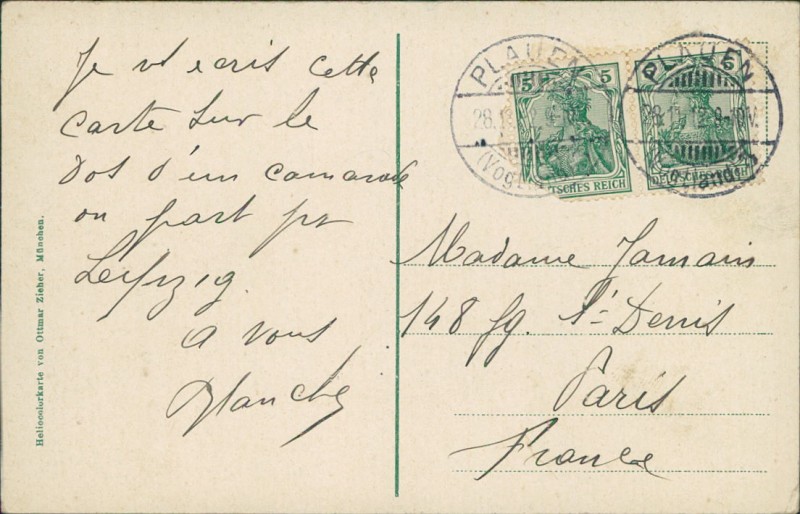 Je vs ecris cette
carte sur le
dos d'un camarade
on part pr
Leipzig.
a vous
Blanche
Heliocolorkarte von Ottmar Zieher, München.
PLAUEN
(Vogtl
5 5
DEUTSCHES REICH
PLAUEN
5
DEUTSCHES REICH
Madame Jamain
148 fg. St- Denis
Paris
France